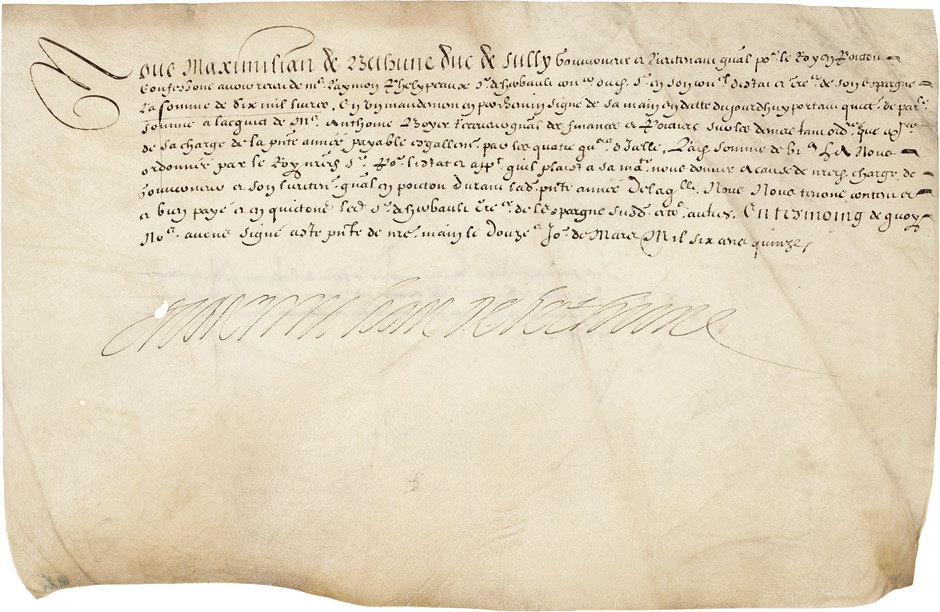 Nous Maximilian de Bethune duc de Sully Gouverneur et Lieutenant gnal po.r le Roy en Poictou
Confessons avoir receu de m.e Raymon Phelypeaux s.r de herbault con.er du s.r en son con.l destat et tre.r de son espargne
La somme de Six mil livres, En un mandement portant quict.
somme a lacquict de M.e Anthoine Boyer Receveur gnal des finances
de sa charge de la pnte année payable esgallem.t par les quatre qu.rs d'icelle, Lad. somme de vj.m l.t a Nous
ordonnée par le Roy nred. s.r po.r lestat et app.t quil plaist a sa ma.té nous donner a cause de nred. charge de
Gouverneur et son lieuten.t gnal en poictou durant lad. pnte année De laq.lle Nous Nous tenons contens et
et bien payé et en quictons led. s.r de herbault tre.r de lespargne susd. et to.s autres. En tesmoing de quoy
No.s avons signé ceste pnte de nre main le Douze.e Jo.r de Mars Mil six cens quinze
Maximilian de bethune